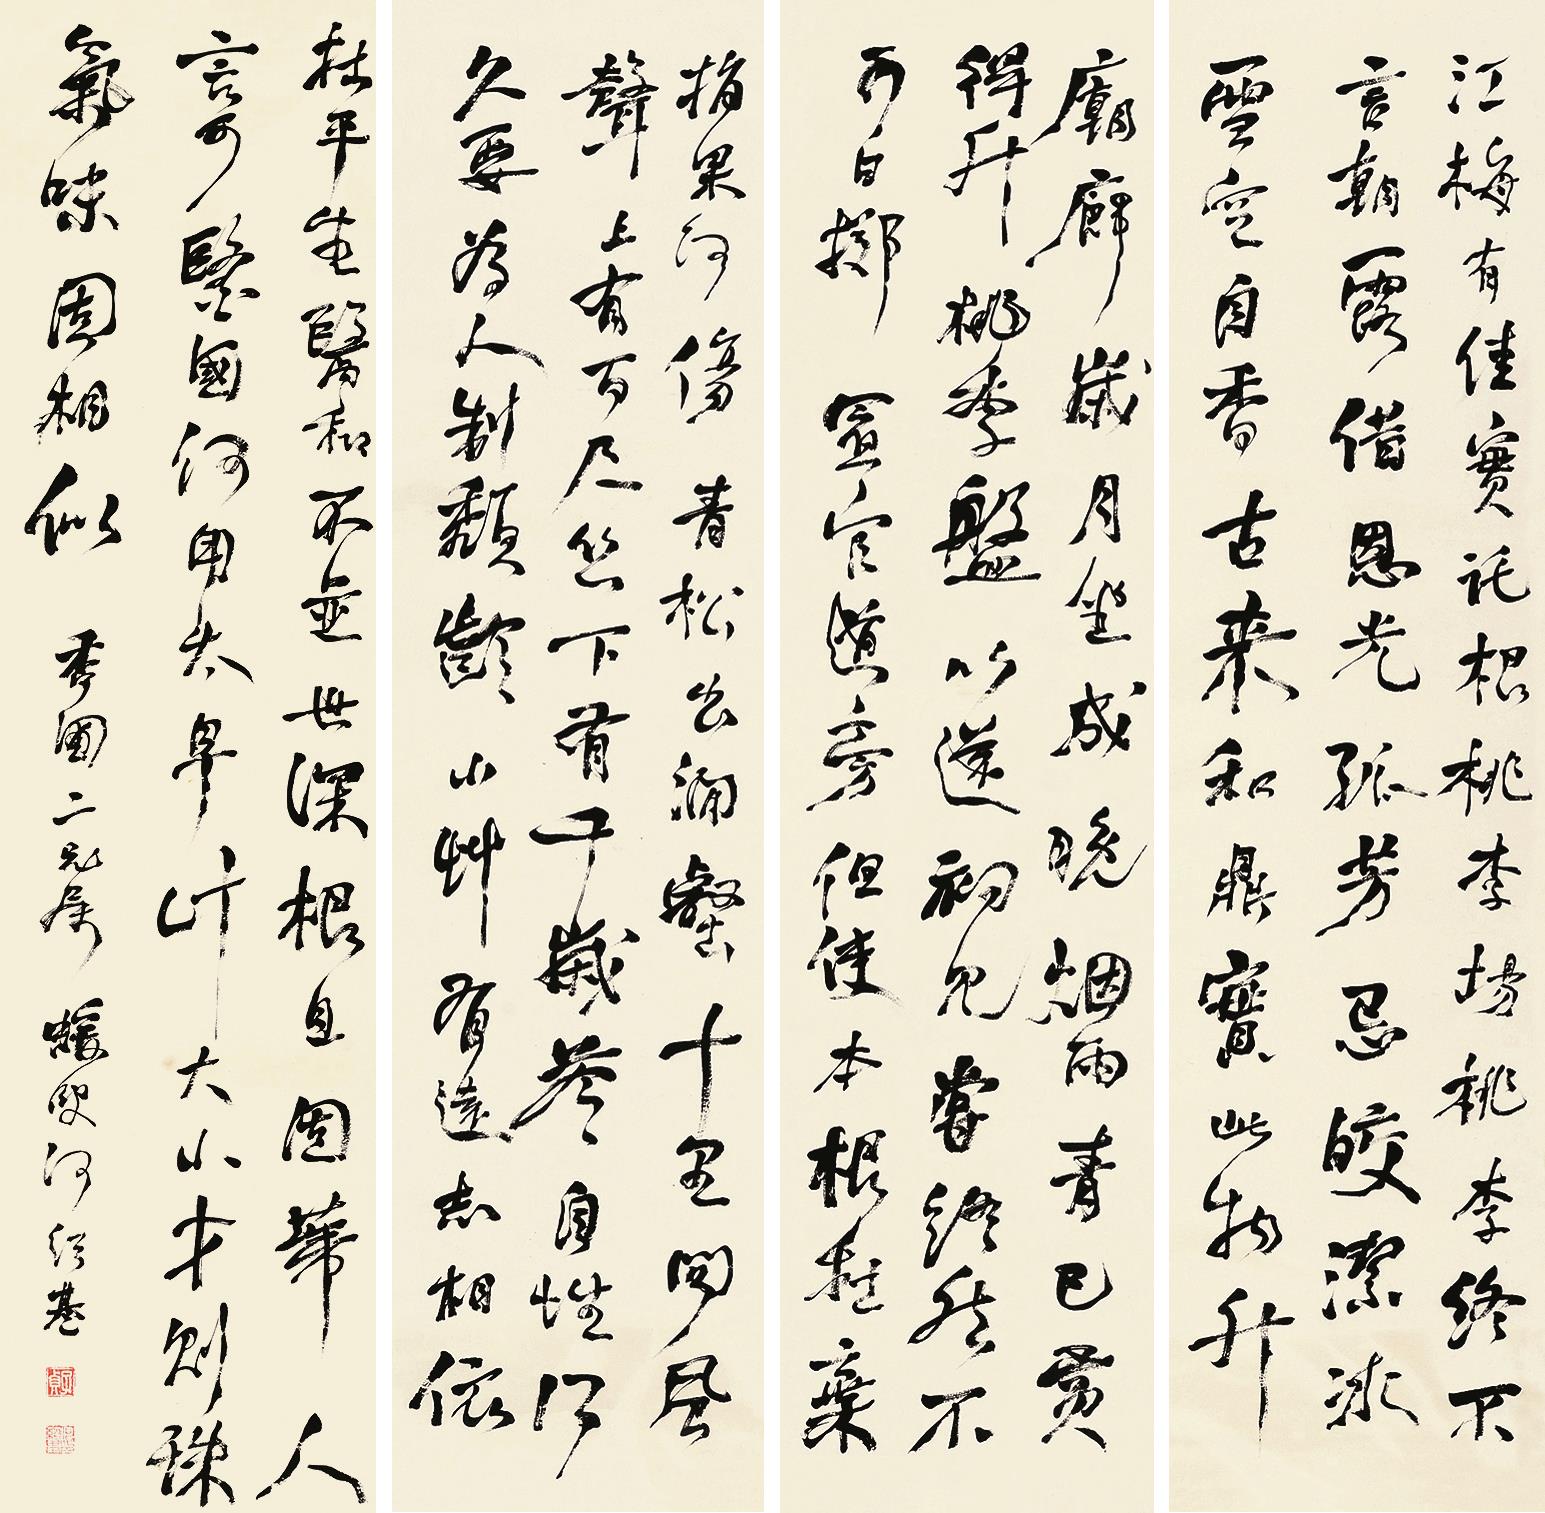 江梅有佳實託根桃李場桃李終不
言朝露借恩光孤芳忌皎潔冰
雪空自香古來和鼎實此物升
廟廊歲月坐成晚烟雨青已黃
得升桃李盤以遠初見嘗終然不
可口擲置官道旁但使本根在棄
捐果何傷青松出澗壑十里聞風
聲上有百尺絲下有千歲苓自性得
久要為人制頹齡小艸有遠志相依
在平生醫和不並世深根且固蒂人
言可醫國何用太早計大小才則殊
氣味固相似 香圃二兄屬 蝯叟何紹基